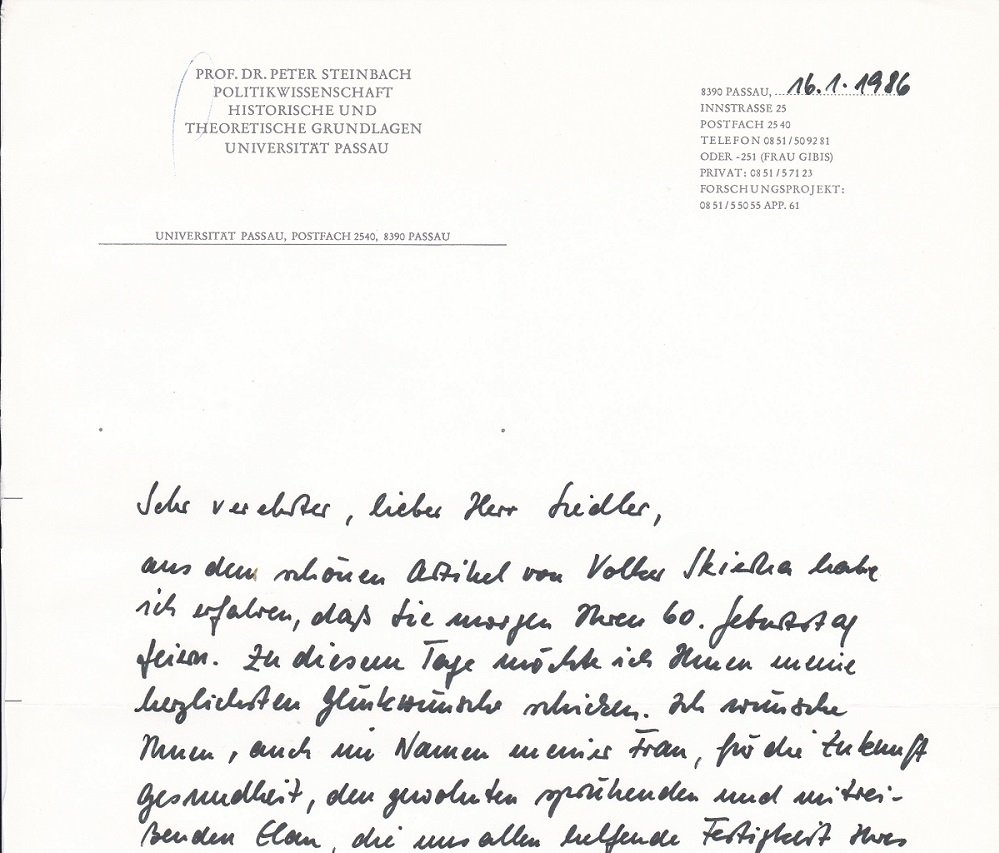 PROF. DR. PETER STEINBACH
POLITIKWISSENSCHAFT
HISTORISCHE UND
THEORETISCHE GRUNDLAGEN
UNIVERSITÄT PASSAU
UNIVERSITÄT PASSAU, POSTFACH 2540, 8390 PASSAU
8390 PASSAU, 16.1.1986
INNSTRASSE 25
POSTFACH 25 40
TELEFON 08 51 / 50 92 81
ODER -251 (FRAU GIBIS)
PRIVAT: 08 51 / 5 71 23
FORSCHUNGSPROJEKT:
08 51 / 5 50 55 APP. 61
Sehr verehrter, lieber Herr Siedler,
aus dem schönen Artikel von Volker Skierka habe
ich erfahren, daß Sie morgen Ihren 60. Geburtstag
feiern. Zu diesem Tage möchte ich Ihnen meine
herzlichsten Glückwünsche schicken. Ich wünsche
Ihnen, auch im Namen meiner Frau, für die Zukunft
Gesundheit, den gewohnten sprühenden und mitrei-
ßenden Elan, die uns allen helfende Festigkeit Ihres